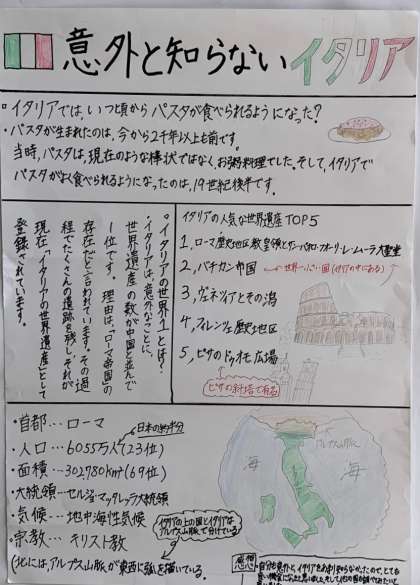 意外と知らないイタリア
・イタリアでは、いつ頃からパスタが食べられるようになった?
・パスタが生まれたのは、今から2千年以上も前です。
当時、パスタは、現在のような棒状ではなく、お粥料理でした。そして、イタリアで
パスタがよく食べられるようになったのは、19世紀後半です。
・イタリアの世界1とは?
・イタリアは、意外なことに、
世界遺産の数が中国と並んで
1位です。理由は、「ローマ帝国」の
存在だと言われています。その過
程でたくさんの遺跡を残し、それが
現在、「イタリアの世界遺産」として
登録されています。
イタリアの人気な世界遺産TOP5
1,ローマ歴史地区、教皇領とサン・パオロ・フオーリ・レ・ムーラ大聖堂
2,バチカン市国
世界一小さい国(イタリアの中にある)
3,ヴェネツィアとその潟
4,フィレンツェ歴史地区
5,ピサのドゥオモ広場
ピサの斜塔で有名
・首都…ローマ
・人口…6055万人(23位)
日本の約半分
・面積…302780km²(69位)
・大統領…セルジョ・マッタレッラ大統領
・気候…地中海性気候
・宗教…キリスト教
イタリアの上の国とイタリアは
アルプス山脈で分けている
(北には、アルプス山脈が東西に弧を描いている。
アルプス山脈
海
海
感想